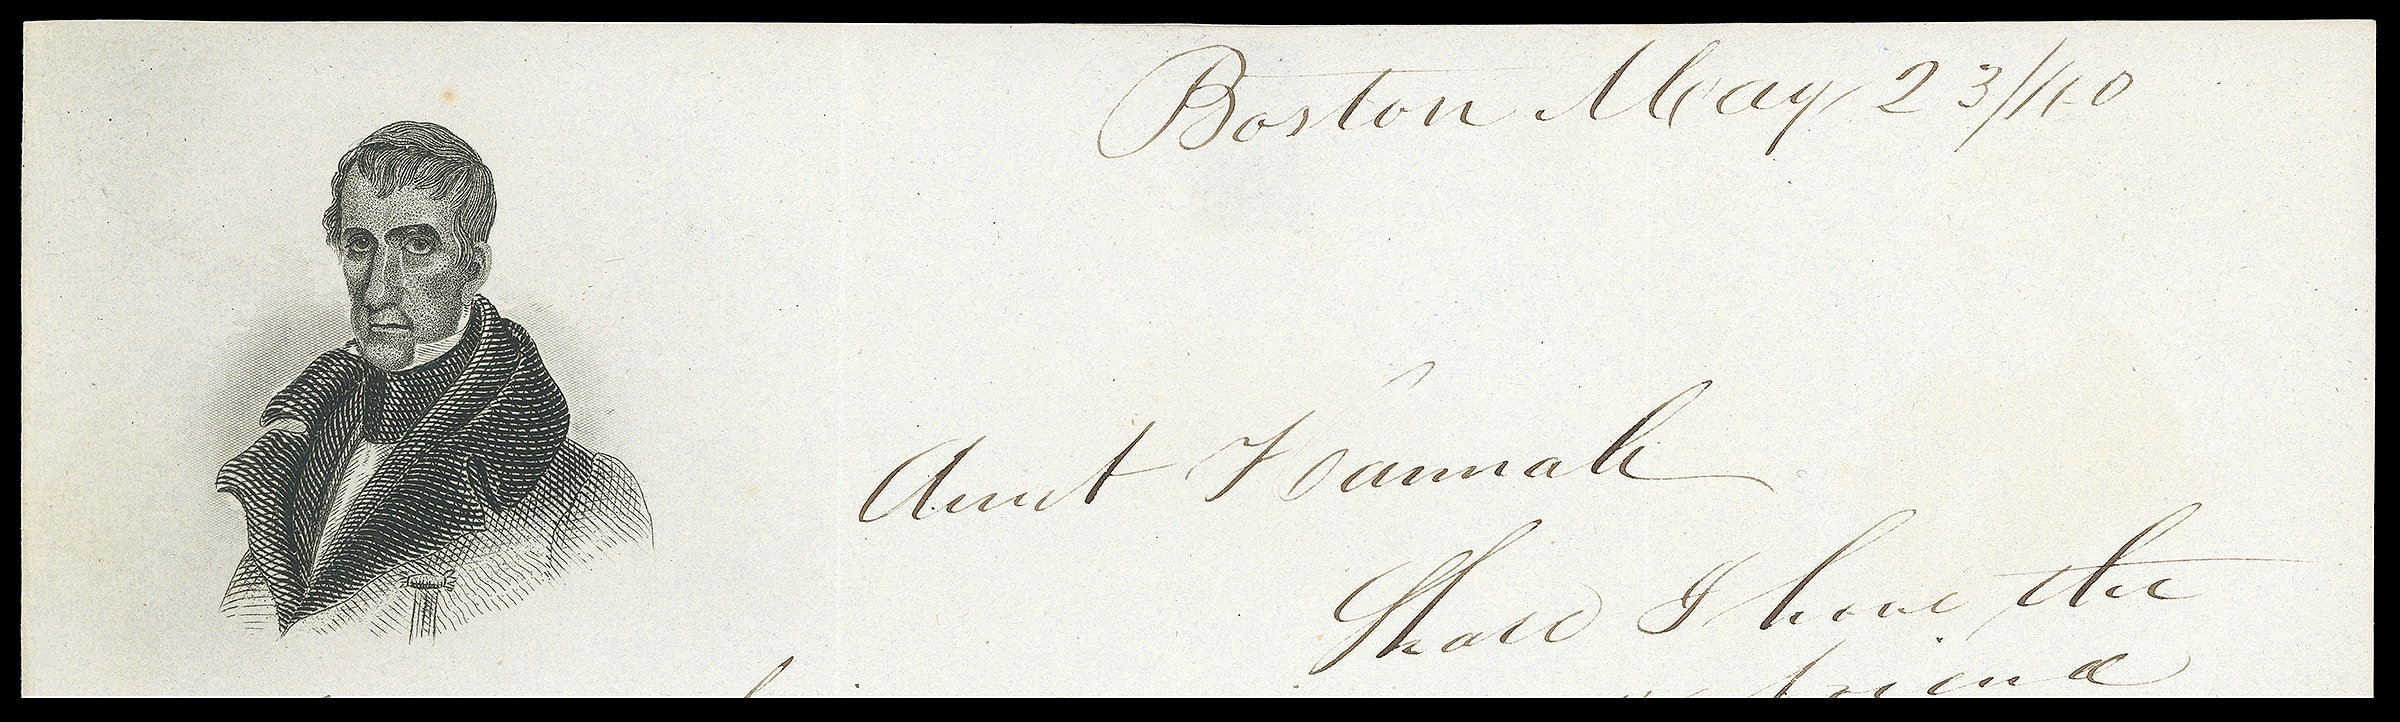 Boston May 23/40
Aunt Hannah
Shall I have the
friend